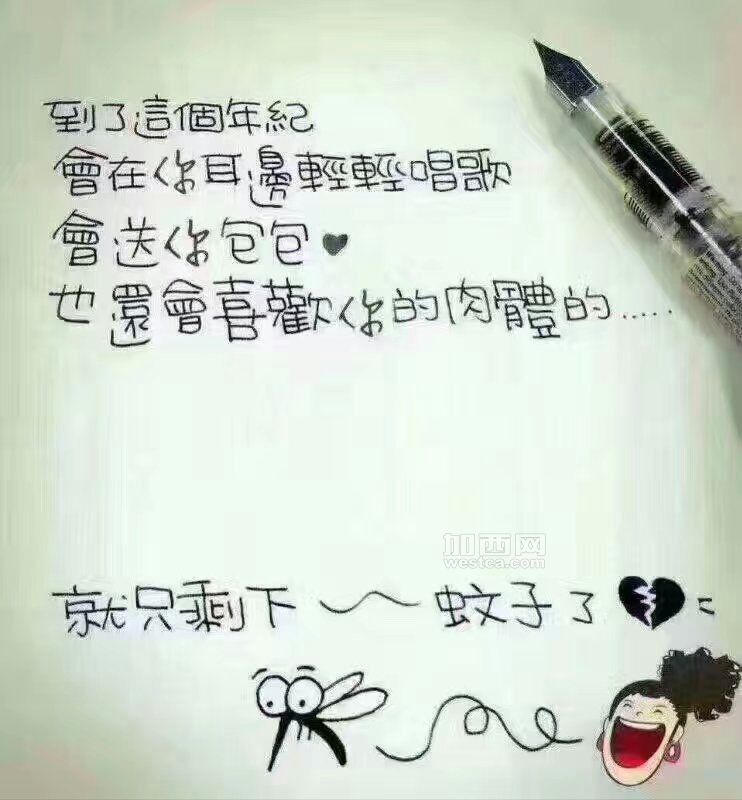 到了這個年紀
會在你耳邊輕輕唱歌
會送你包包♥
也還會喜歡你的肉體的.....
加西网
westca.com
就只剩下～蚊子了💔=